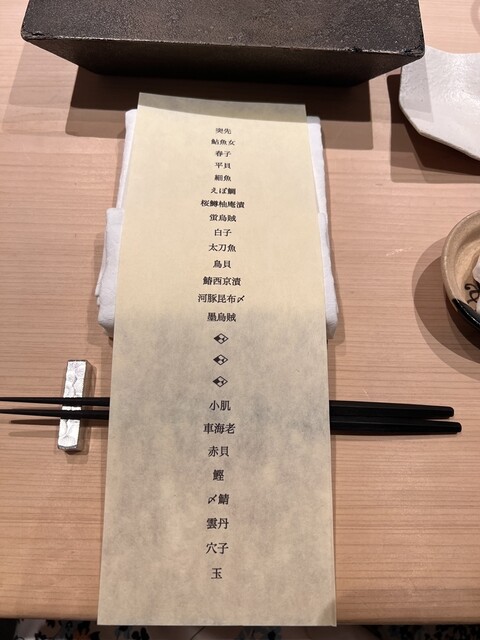 突先
鮎魚女
春子
平貝
細魚
えぼ鯛
桜鱒柚庵漬
蛍烏賊
白子
太刀魚
鳥貝
鰆西京漬
河豚昆布〆
墨烏賊
小肌
車海老
赤貝
鰹
〆鯖
雲丹
穴子
玉